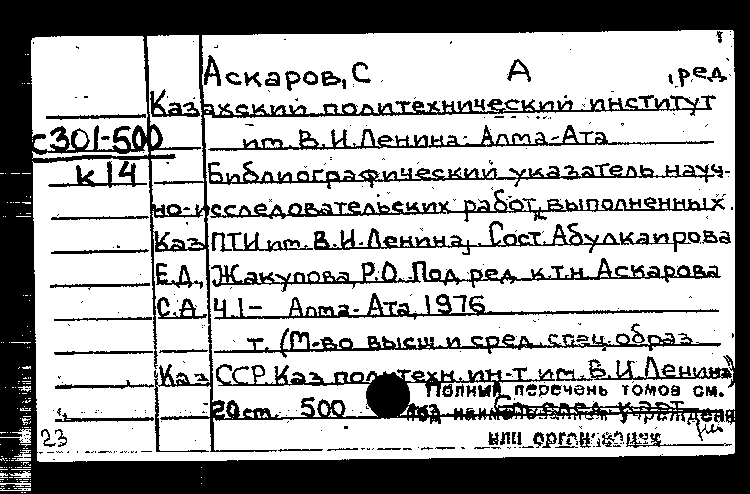 Аскаров, С А , ред
Казахский политехнический институт
с301-500 им. В.И.Ленина. Алма-Ата
к14 Библиографический указатель науч-
но-исследовательских работ, выполненных
КазПТИ им. В.И.Ленина, Сост. Абулкаирова
Е.Д., Жакупова, Р.О. Под ред. к.т.н Аскарова
С.А. Ч.1- Алма-Ата, 1976
т. (М-во высш. и сред. спец. образ.
Каз ССР Каз политехн. ин-т им. В.И.Ленина)
Полный перечень томов см.
20 ст. 500 под наименованием учреждения
23 или организации